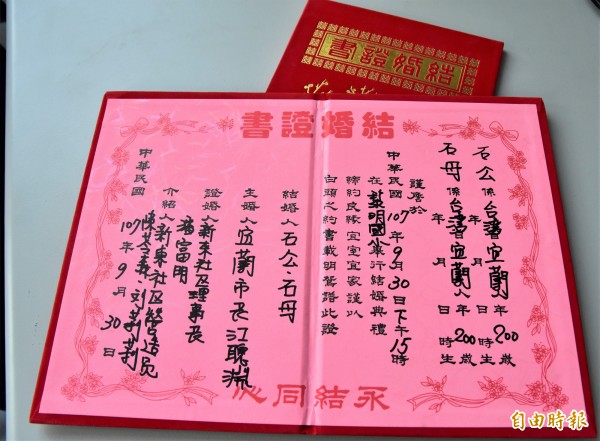 書證婚結
書證婚結
石公係台灣宜蘭人年200歲
年 月 日 時生
石母係台灣宜蘭人年200歲
年 月 日 時生
謹詹於
中華民國107年9月30日下午15時
在黎明國小舉行結婚典禮
締約良緣宜室宜家謹以
白頭之約書載明鴛譜此證
結婚人石公、石母
主婚人宜蘭市長江聰淵
證婚人新東社區理事長
潘富明
介紹人新東社區總幹事
中華民國107年9月30日
心同結永
自由時報